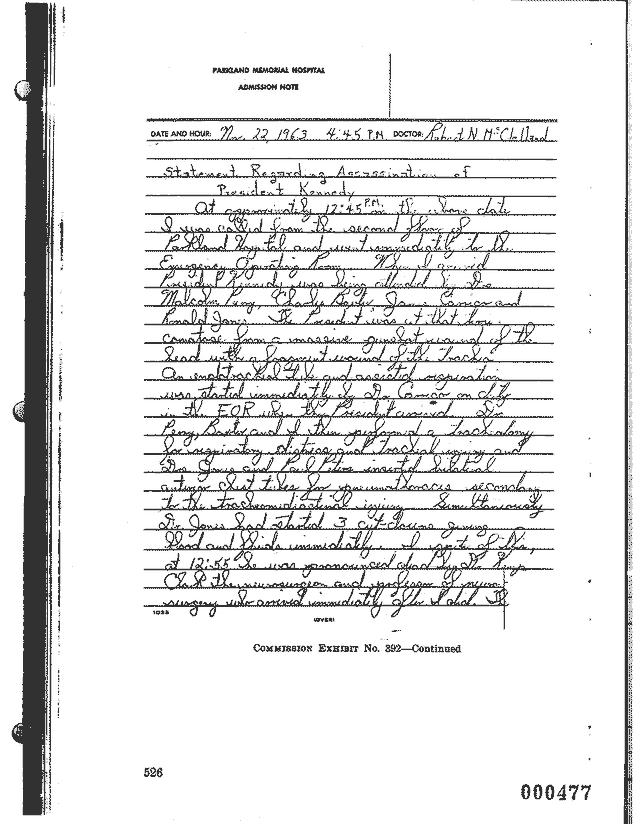 PARKLAND MEMORIAL HOSPITAL
ADMISSION NOTE
DATE AND HOUR: Nov. 22, 1963 4:45 P.M. DOCTOR: Robert N. McClelland
Statement Regarding Assassination of
President Kennedy
At approximately 12:45 P.M. on the above date
I was called from the second floor of
Parkland Hospital and went immediately to the
Emergency Operating Room. When I arrived
President Kennedy was being attended by Drs
Malcolm Perry, Charles Baxter, James Carrico and
Ronald Jones. The President was at that time
comatose from a massive gunshot wound of the
head with a fragment wound of the trachea.
An endotracheal tube and assisted respiration
was started immediately by Dr. Carrico on duty
in the EOR when the President arrived. Drs.
Perry, Baxter and I then performed a tracheotomy
for respiratory distress and tracheal injury and
Drs. Jones and Paul Peters inserted bilateral
anterior chest tubes for pneumothoracis secondary
to the tracheomediastinal injury. Simultaneously
Dr. Jones had started 3 cut-downs giving
blood and fluids immediately. In spite of this,
at 12:55 he was pronounced dead by Dr. Kemp
Clark the neurosurgeon and professor of neuro
surgery who arrived immediately after I did. The
1025
(OVER)
COMMISSION EXHIBIT No. 392—Continued
526
000477